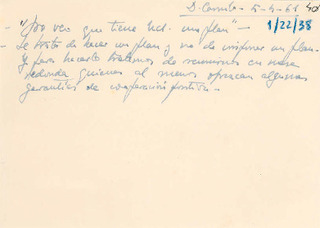 D. Camilo - 5-4-65
1/22/38
- "Yo veo que tiene Ud. un plan" -
- Se trata de hacer un plan y no de imponer un plan -
Y para hacerlo tratemos de reunirnos en mesa
redonda quienes al menos ofrezcan algunas
garantías de cooperación positiva -